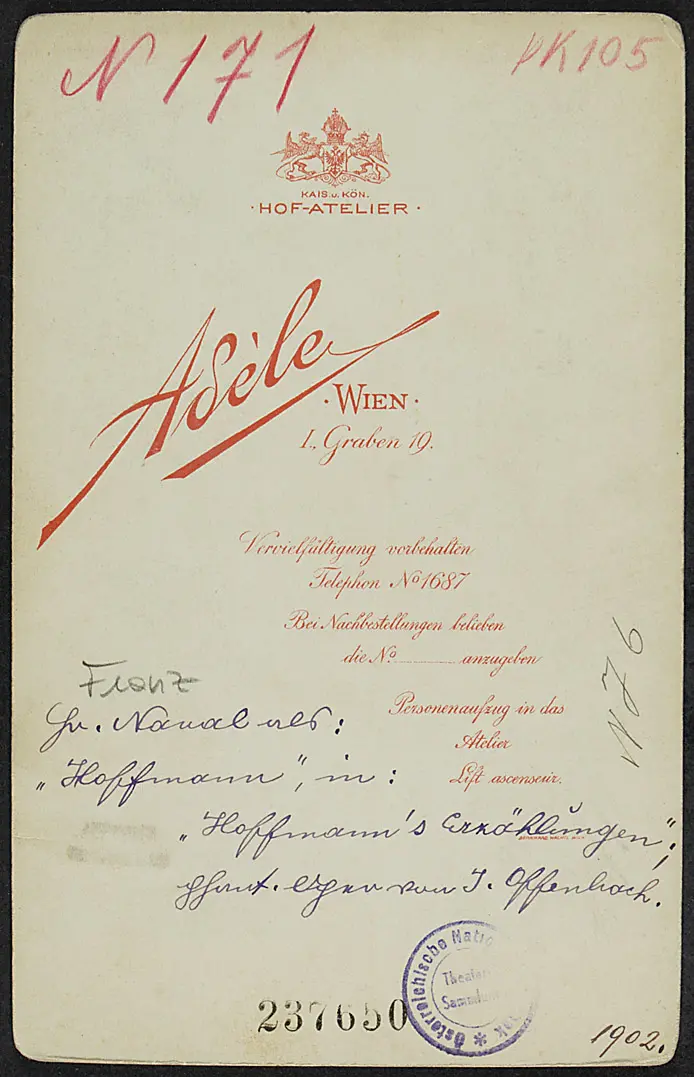 N 171
PK 105
KAIS. u. KÖN.
· HOF-ATELIER ·
Adèle
· WIEN ·
I., Graben 19.
Vervielfältigung vorbehalten
Telephon No 1687
Bei Nachbestellungen belieben
die No. anzugeben
N 76
Franz
Personenaufzug in das
Hr. Naval als:
Atelier
„Hoffmann", in:
Lift ascenseur.
„Hoffmann's Erzählungen";
phant. Oper von J. Offenbach.
Österreichische Natio
Theater
Samml
237650
1902.